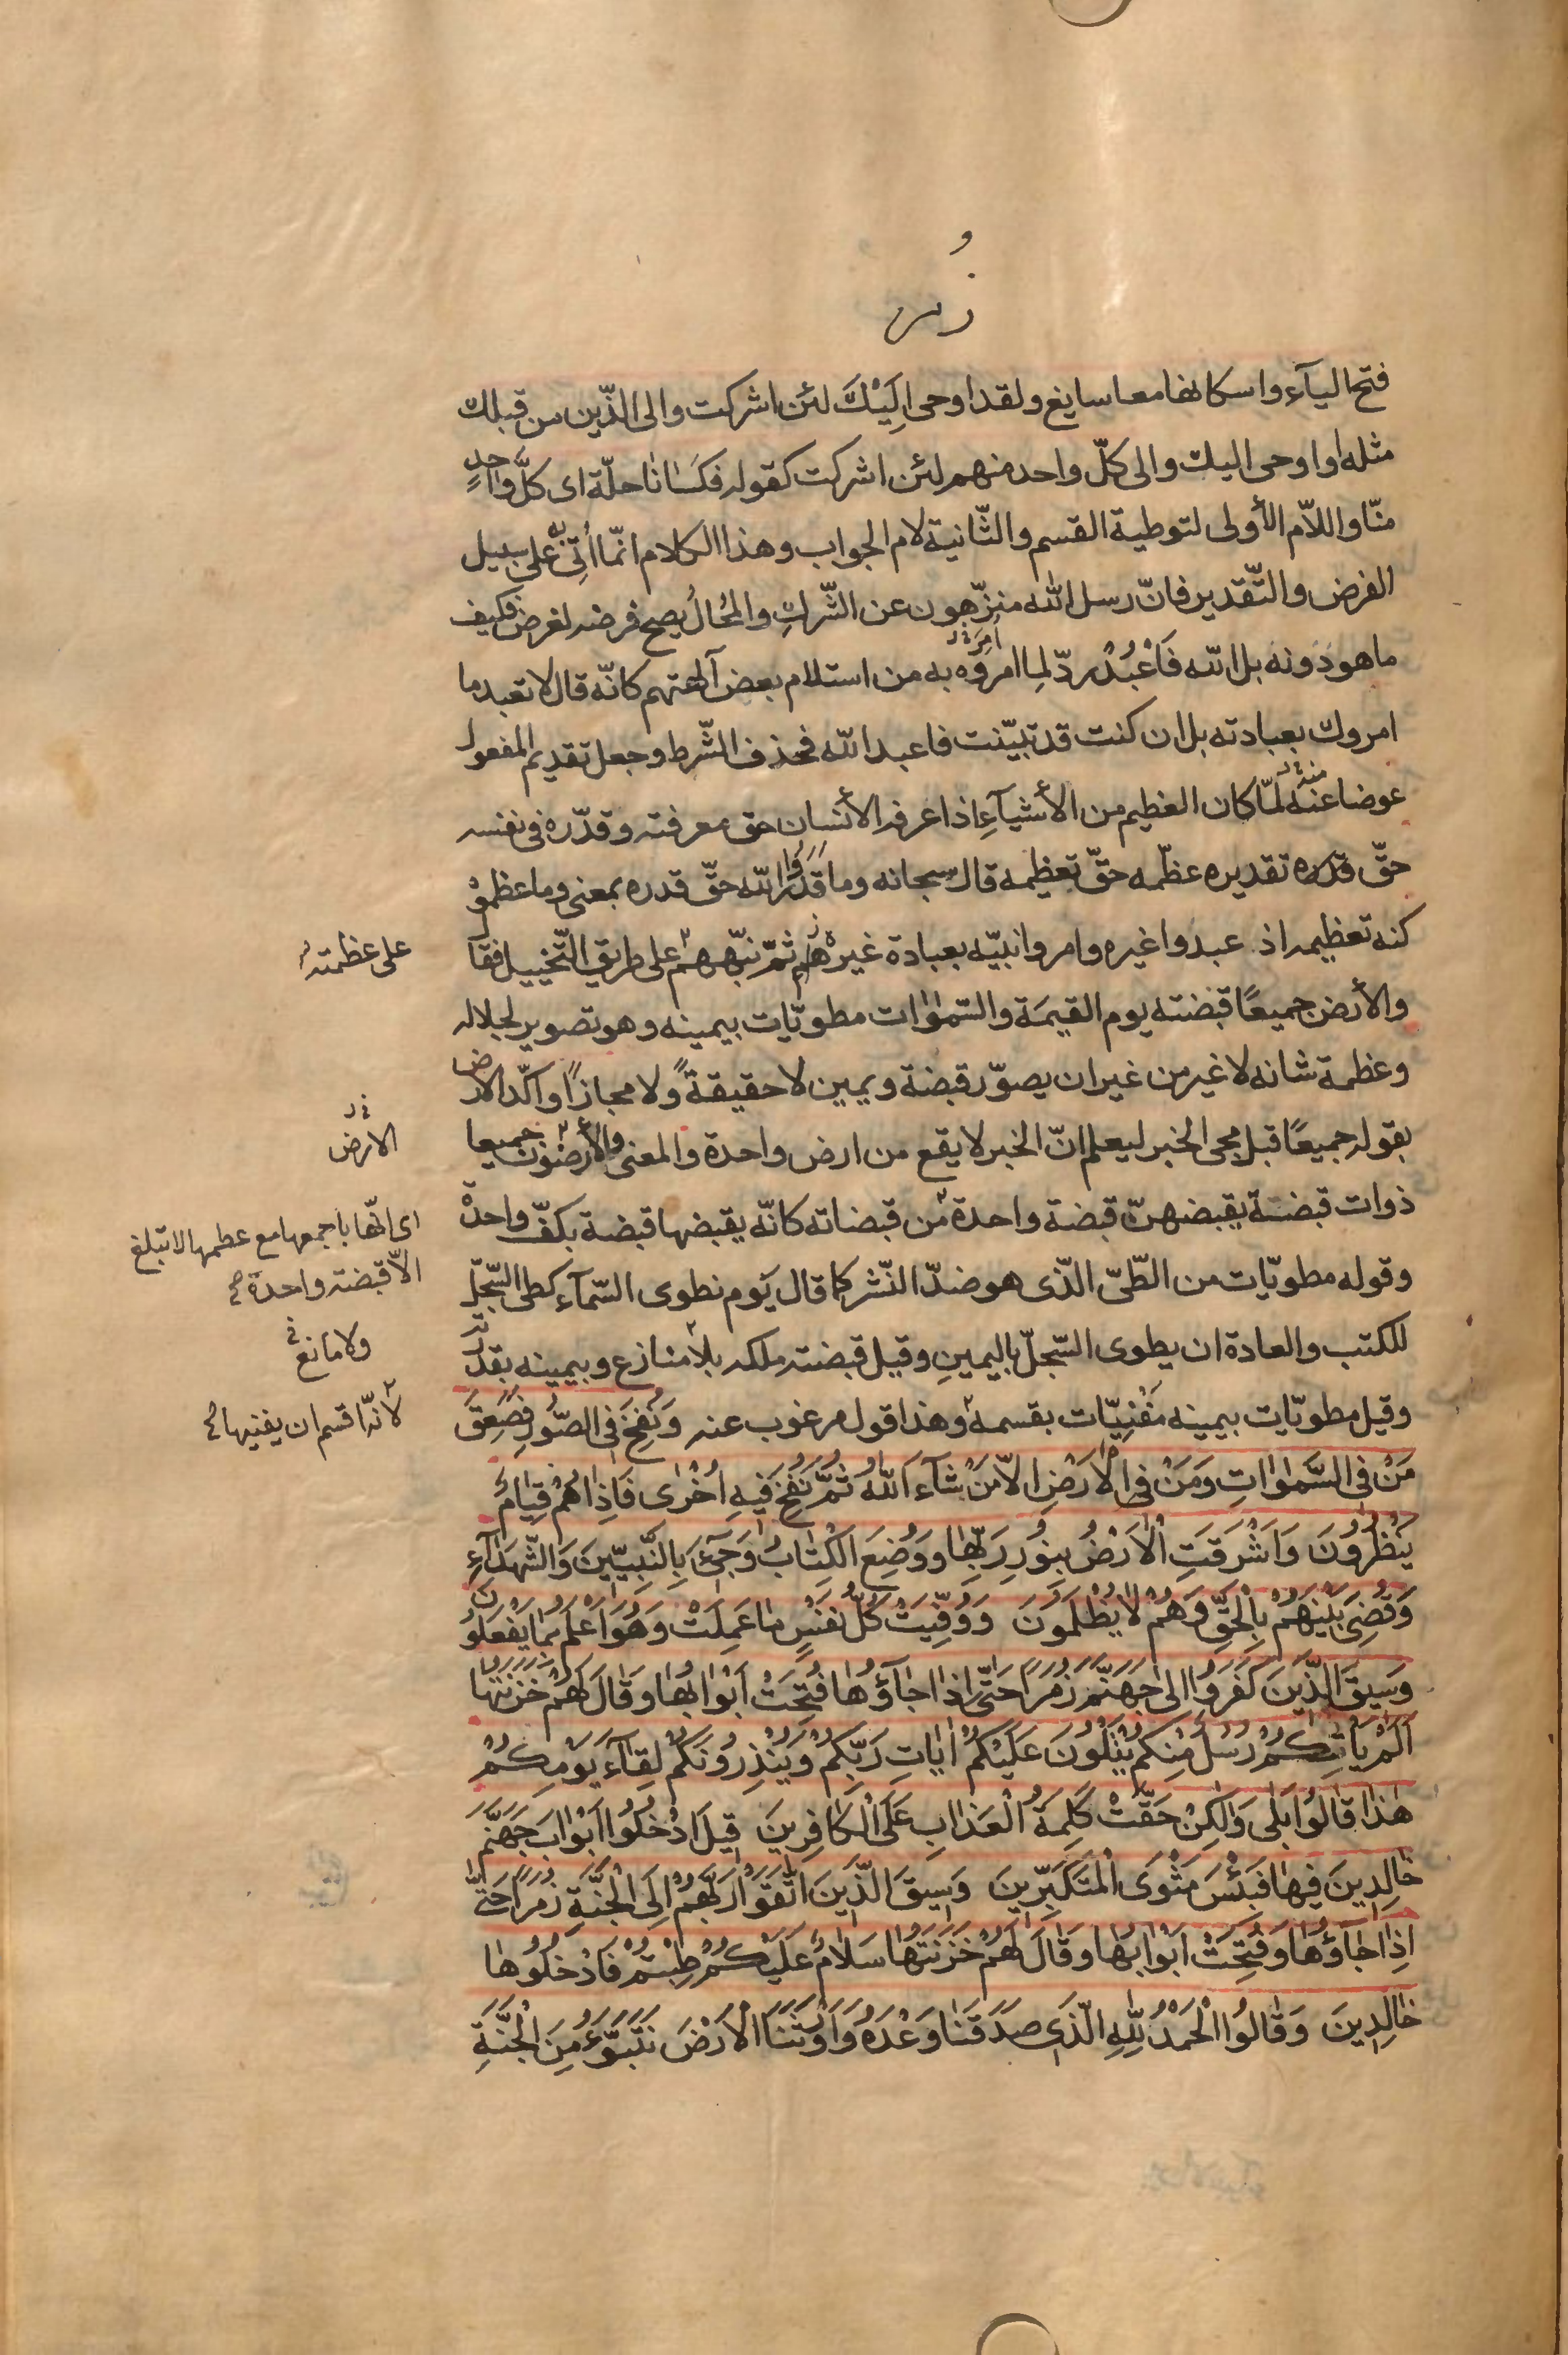 زُمر
فتح الياۤء واسكانها معا سايغ ولقد اوحى اِلَيْكَ لئن اشركت والى الّذين من قبلك
مثله او اوحى اليك والى كلّ واحد منهم لئن اشركت كقوله فكسانا حلّة اى كلَّ واحدٍ
منّا واللاّم الأولى لتوطية القسم والثّانية لام الجواب وهذا الكلام انّما اُتِىَ به على سبيل
الفرض والتّقدير فانّ رسل الله منزّهون عن الشّركِ والمُحالُ يصح فرضه لغرض فكيف
ما هو دونه بل الله فَاعْبُدْ ردّ لِما امروه به من استلام بعض آلهتهم كانّه قال لا تعبد ما
امروك بعبادته بل ان كنت قد تبيّنت فاعبد الله فحذف الشّرط وجعل تقديم المفعول
عوضا عنه لمّا كان العظيم من الأشياۤءِ اذا عرفه الأنسان حق معرفته وقدّره فى نفسه
حقّ قدره تقديره عظّمه حقّ تعظيمه قال سبحانه وما قَدَرُوا الله حقّ قدره بمعنى وما عظموْ
كنه تعظيمه اذ عبدوا غيره وامروا نبيّه بعبادة غيره ثمّ نبّههم على طريق التّخييل فقا
على عظمته
والأرض جميعًا قبضته يوم القيمَة والسّمٰوٰات مطويّات بيمينه وهو تصوير لجلاله
وعظمة شانه لا غير من غير ان يصوّر قبضة ويمين لا حقيقةً ولا مجازًا واكّد الارض
بقوله جميعًا قبل مجى الخبر ليعلم انّ الخبر لا يقع من ارض واحدة والمعنى والأرضون جميعا
الارض
ذوات قبضتة يقبضهنّ قبضة واحدة من قبضاته كانّه يقبضها قبضة بكفّ واحدة
اى انّها باجمعها مع عظمها لا تبلغ
الاّ قبضة واحدة
وقوله مطويّات من الطّىّ الّذى هو ضدّ النّشر كما قال يَوم نطوى السّمآء كطى السّجلّ
للكتب والعادة ان يطوى السّجلّ باليمينِ وقيل قبضته ملكه بلا منازع وبيمينه بقدرته
ولا مانع
وقيل مطويّات بيمينه مَفْنِيّات بقسمه وهذا قول مرغوب عنه وَنُفِخَ فِى الصُّورِ فَصَعِقَ
لانّه اقسم ان يفنيها
مَنْ فِى السَّمٰوٰاتِ وَمَنْ فِى الْاَرْضِ اِلاّ مَنْ شٰآءَ اللّٰهُ ثُمَّ نُفِخَ فيهِ اُخْرٰى فَاِذٰا هُمْ قِيٰامٌ
يَنْظُرُونَ وَاَشْرَقَتِ الْاَرْضُ بِنُورِ رَبِّهٰا وَوُضِعَ الْكِتٰابُ وَجىۤءَ بِالنَّبِيّينَ وَالشُّهَدٰآءِ
وَقُضِىَ بَيْنَهُمْ بِالْحَقِّ وَهُمْ لاٰ يُظْلَمُونَ وَوُفِّيَتْ كُلُّ نَفْسٍ مٰا عَمِلَتْ وَهُوَ اَعْلَمُ بِمٰا يَفْعَلُونَ
وَسيقَ الَّذينَ كَفَرُوا اِلىٰ جَهَنَّمَ زُمَرًا حَتّٰى اِذٰا جٰآؤُهٰا فُتِحَتْ اَبْوٰابُهٰا وَقٰالَ لَهُمْ خَزَنَتُهٰا
اَلَمْ يَاْتِكُمْ رُسُلٌ مِنْكُمْ يَتْلُونَ عَلَيْكُمْ اٰيٰاتِ رَبِّكُمْ وَيُنْذِرُونَكُمْ لِقٰآءَ يَوْمِكُمْ
هٰذٰا قٰالُوا بَلٰى وَلٰكِنْ حَقَّتْ كَلِمَةُ الْعَذٰابِ عَلَى الْكٰافِرينَ قيلَ ادْخُلُوا اَبْوٰابَ جَهَنَّمَ
خٰالِدينَ فيهٰا فَبِئْسَ مَثْوَى الْمُتَكَبِّرينَ وَسيقَ الَّذينَ اتَّقَوْا رَبَّهُمْ اِلَى الْجَنَّةِ زُمَرًا حَتّٰى
اِذٰا جٰآؤُهٰا وَفُتِحَتْ اَبْوٰابُهٰا وَقٰالَ لَهُمْ خَزَنَتُهٰا سَلاٰمٌ عَلَيْكُمْ طِبْتُمْ فَادْخُلُوهٰا
خٰالِدينَ وَقٰالُوا الْحَمْدُ لِلّٰهِ الَّذى صَدَقَنٰا وَعْدَهُ وَاَوْرَثَنَا الْاَرْضَ نَتَبَوَّءُ مِنَ الْجَنَّةِ